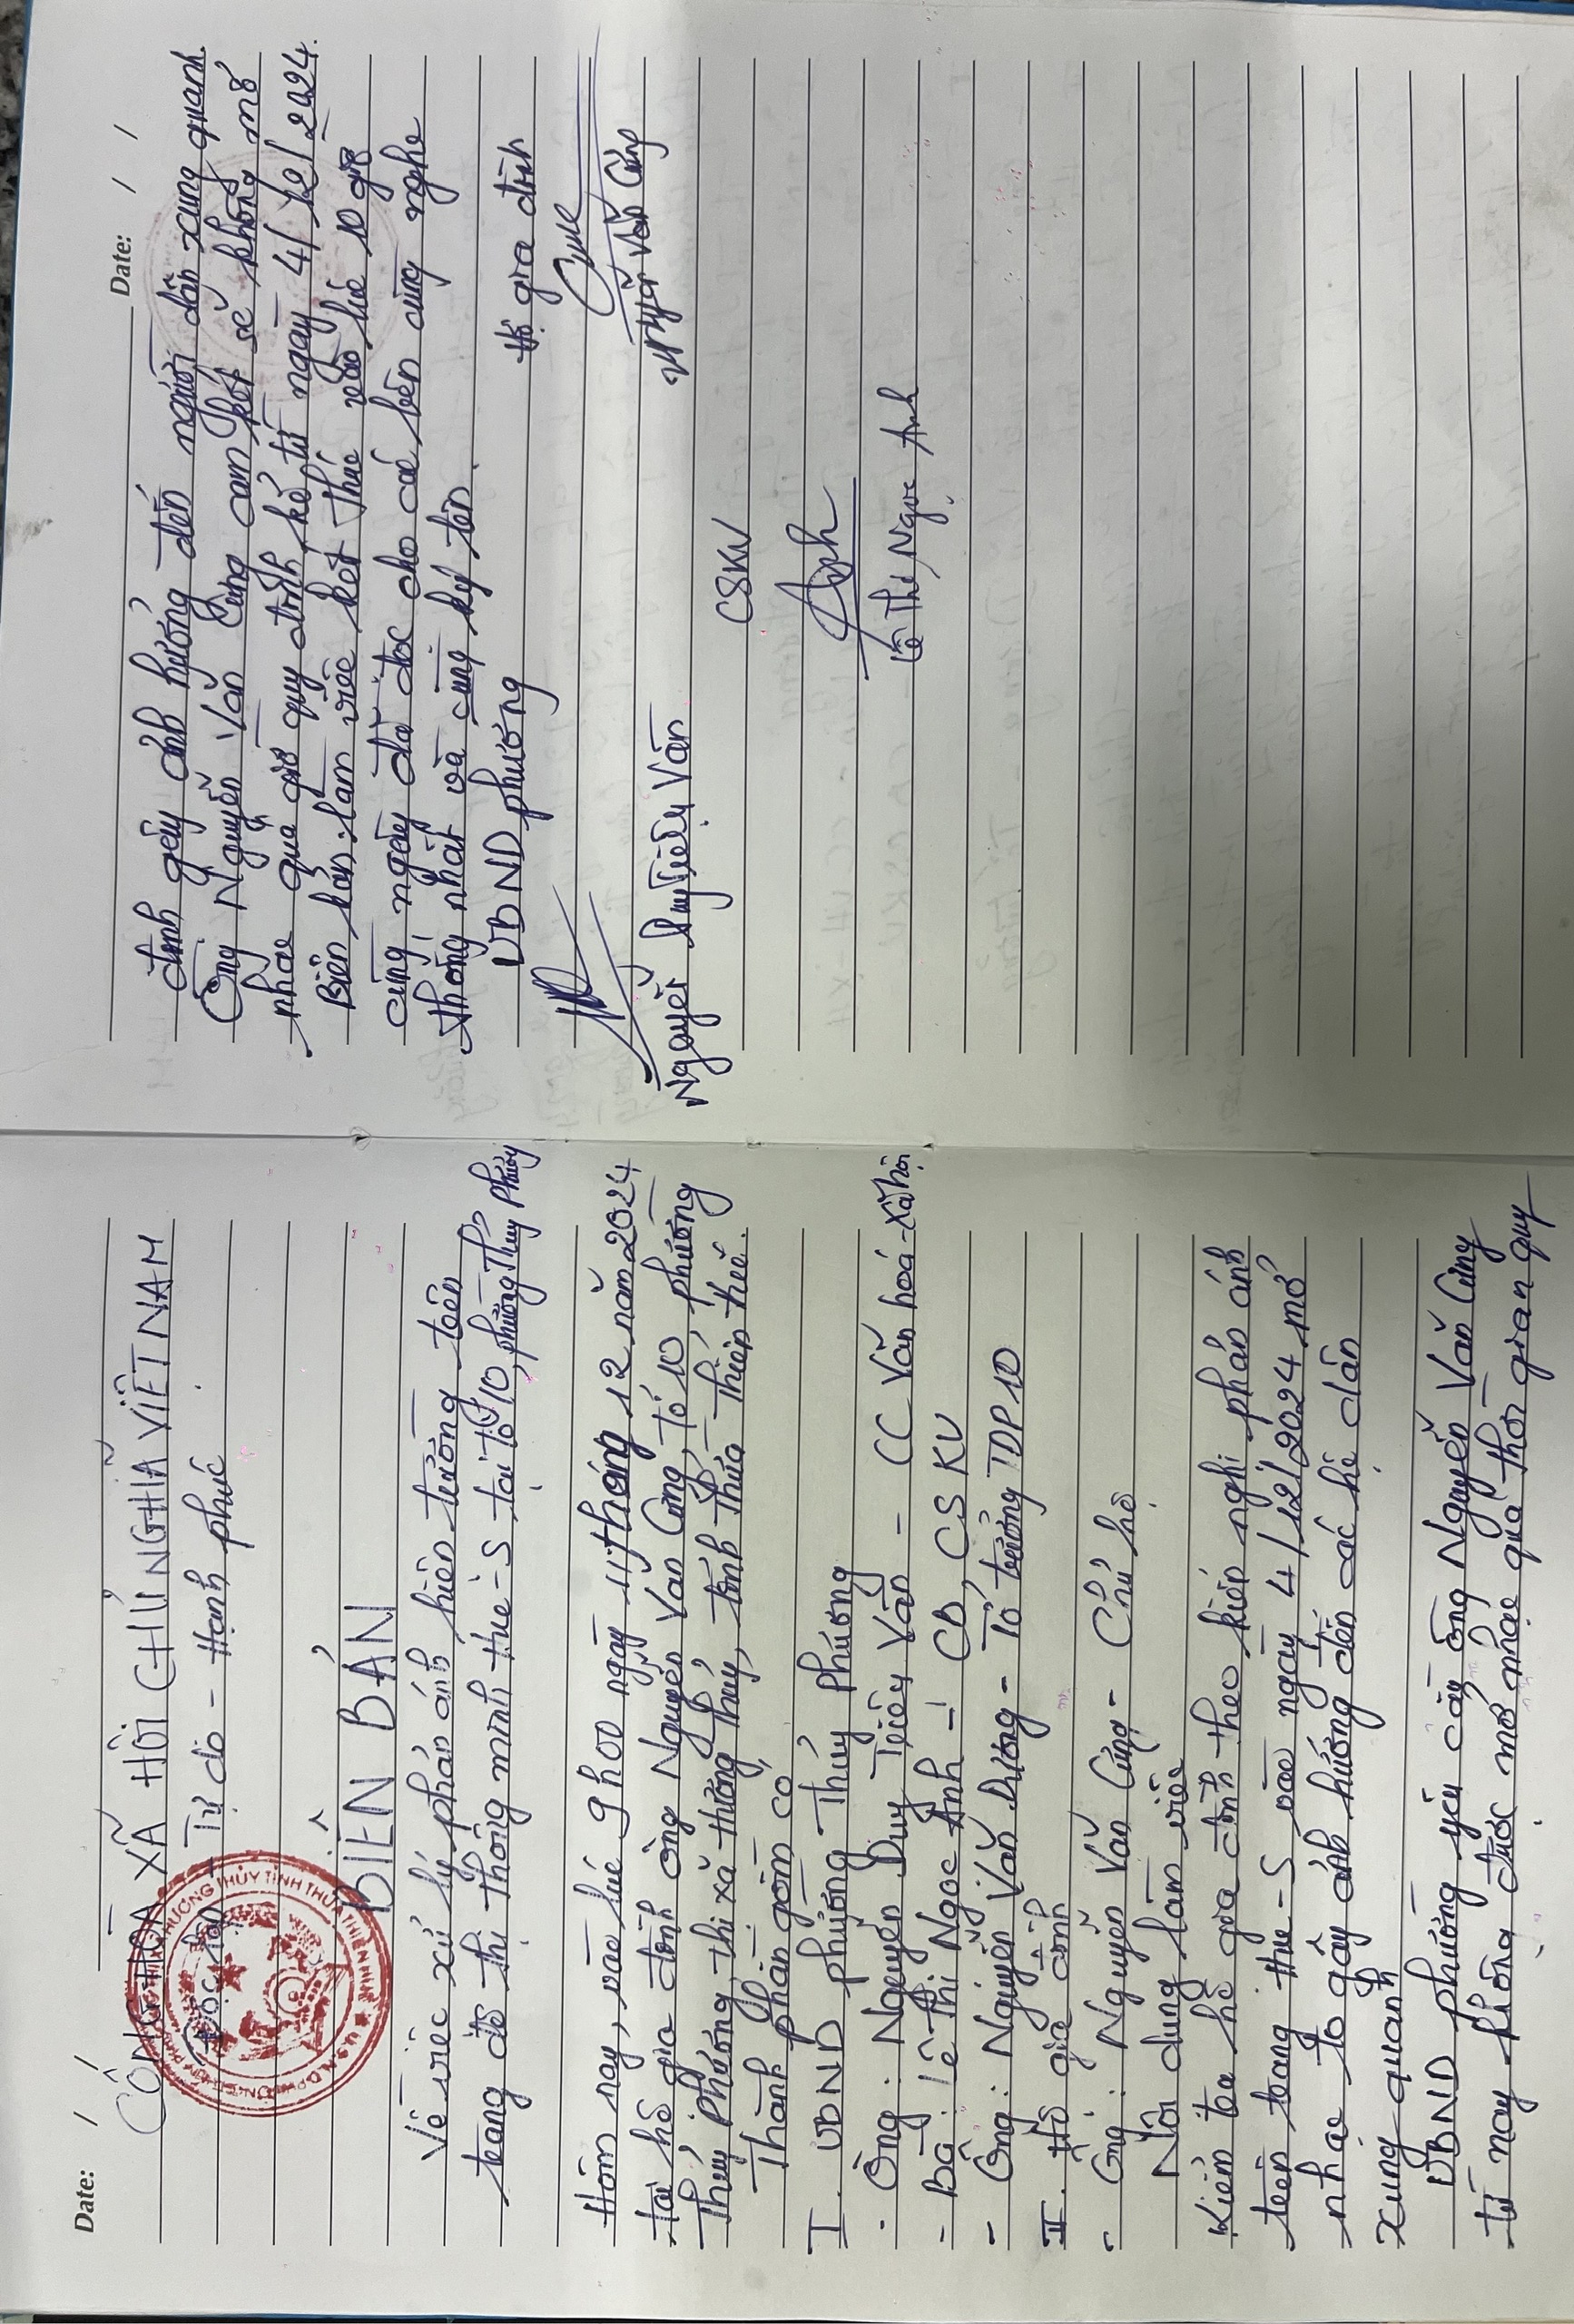 Date: / /
CÔNG HÒA XÃ HỘI CHỦ NGHĨA VIỆT NAM
Độc lập - Tự do - Hạnh phúc
BIÊN BẢN
Về việc xử lý phản ánh hiện tường trên
trang đô thị thông minh Hue-S tại tổ 10, phường Thủy Phương
Hôm nay, vào lúc 9h00 ngày 11 tháng 12 năm 2024
tại hộ gia đình ông Nguyễn Văn Cung, tổ 10, phường
Thủy Phương, thị xã Hương Thủy, tỉnh Thừa Thiên Huế.
Thành phần gồm có
I. UBND phường Thủy Phương
- Ông: Nguyễn Duy Triệu Vân - CC Văn hoá - Xã hội
- Bà: Lê Thị Ngọc Anh - CB, CSKV
- Ông: Nguyễn Văn Dương - Tổ trưởng TDP 10
II. Hộ gia đình
- Ông: Nguyễn Văn Cung - Chủ hộ
Nội dung làm việc
Kiểm tra hộ gia đình theo kiến nghị phản ánh
trên trang Hue-S vào ngày 4/12/2024 mở
nhạc to gây ảnh hưởng đến các hộ dân
xung quanh
UBND phường yêu cầu ông Nguyễn Văn Cung
từ nay không được mở nhạc quá thời gian quy
Date: / /
định gây ảnh hưởng đến người dân xung quanh.
Ông Nguyễn Văn Cung cam kết sẽ không mở
nhạc quá giờ quy định kể từ ngày 4/12/2024.
Biên bản làm việc kết thúc vào lúc 10 giờ
cùng ngày đã đọc cho các bên cùng nghe
thống nhất và cùng ký tên.
UBND phường Hộ gia đình
Nguyễn Duy Triệu Vân Nguyễn Văn Cung
CSKV
Anh
Lê Thị Ngọc Anh